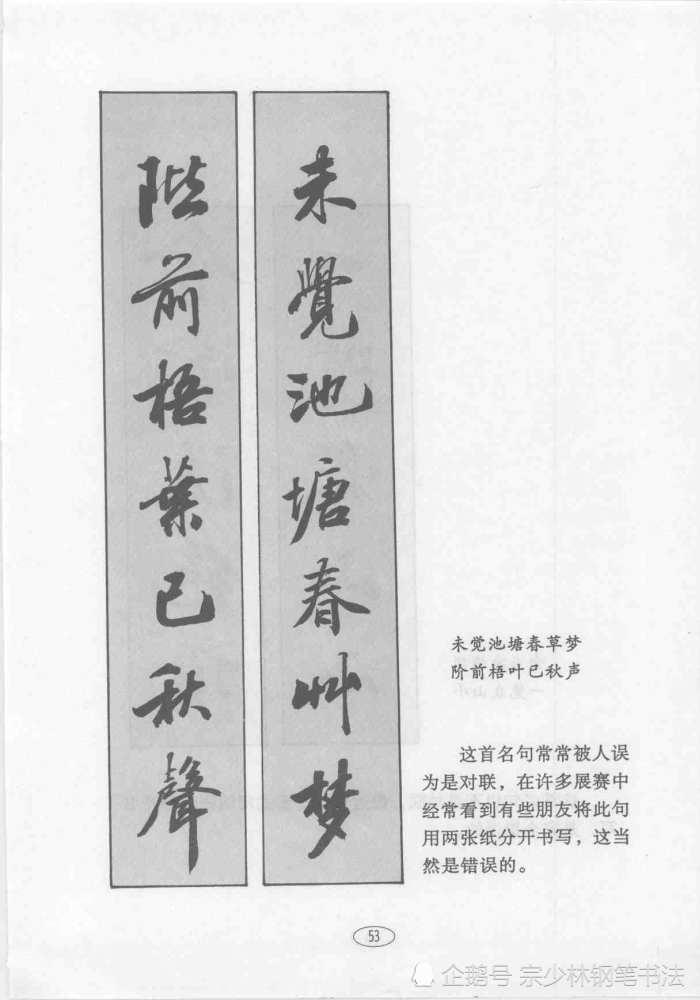 未覺池塘春艸梦
階前梧葉已秋聲
未觉池塘春草梦
阶前梧叶已秋声
这首名句常常被人误
为是对联，在许多展赛中
经常看到有些朋友将此句
用两张纸分开书写，这当
然是错误的。
53
企鹅号 宗少林钢笔书法